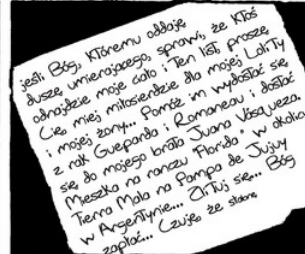 jeśli Bóg, któremu oddaję
duszę umierającego, sprawi, że ktoś
odnajdzie moje ciało i ten list, proszę
Cię, miej miłosierdzie dla mojej Lolity
i mojej żony... Pomóż im wydostać się
z rąk Guepanda i Romaneau i dostać
się do mojego brata Juana Vasqueza.
Mieszka na ranczu "Florida" w okolicy
Tierra Mala na Pampa de Jujuy
w Argentynie... Zlituj się... Bóg
zapłać... Czuję, że stabnę